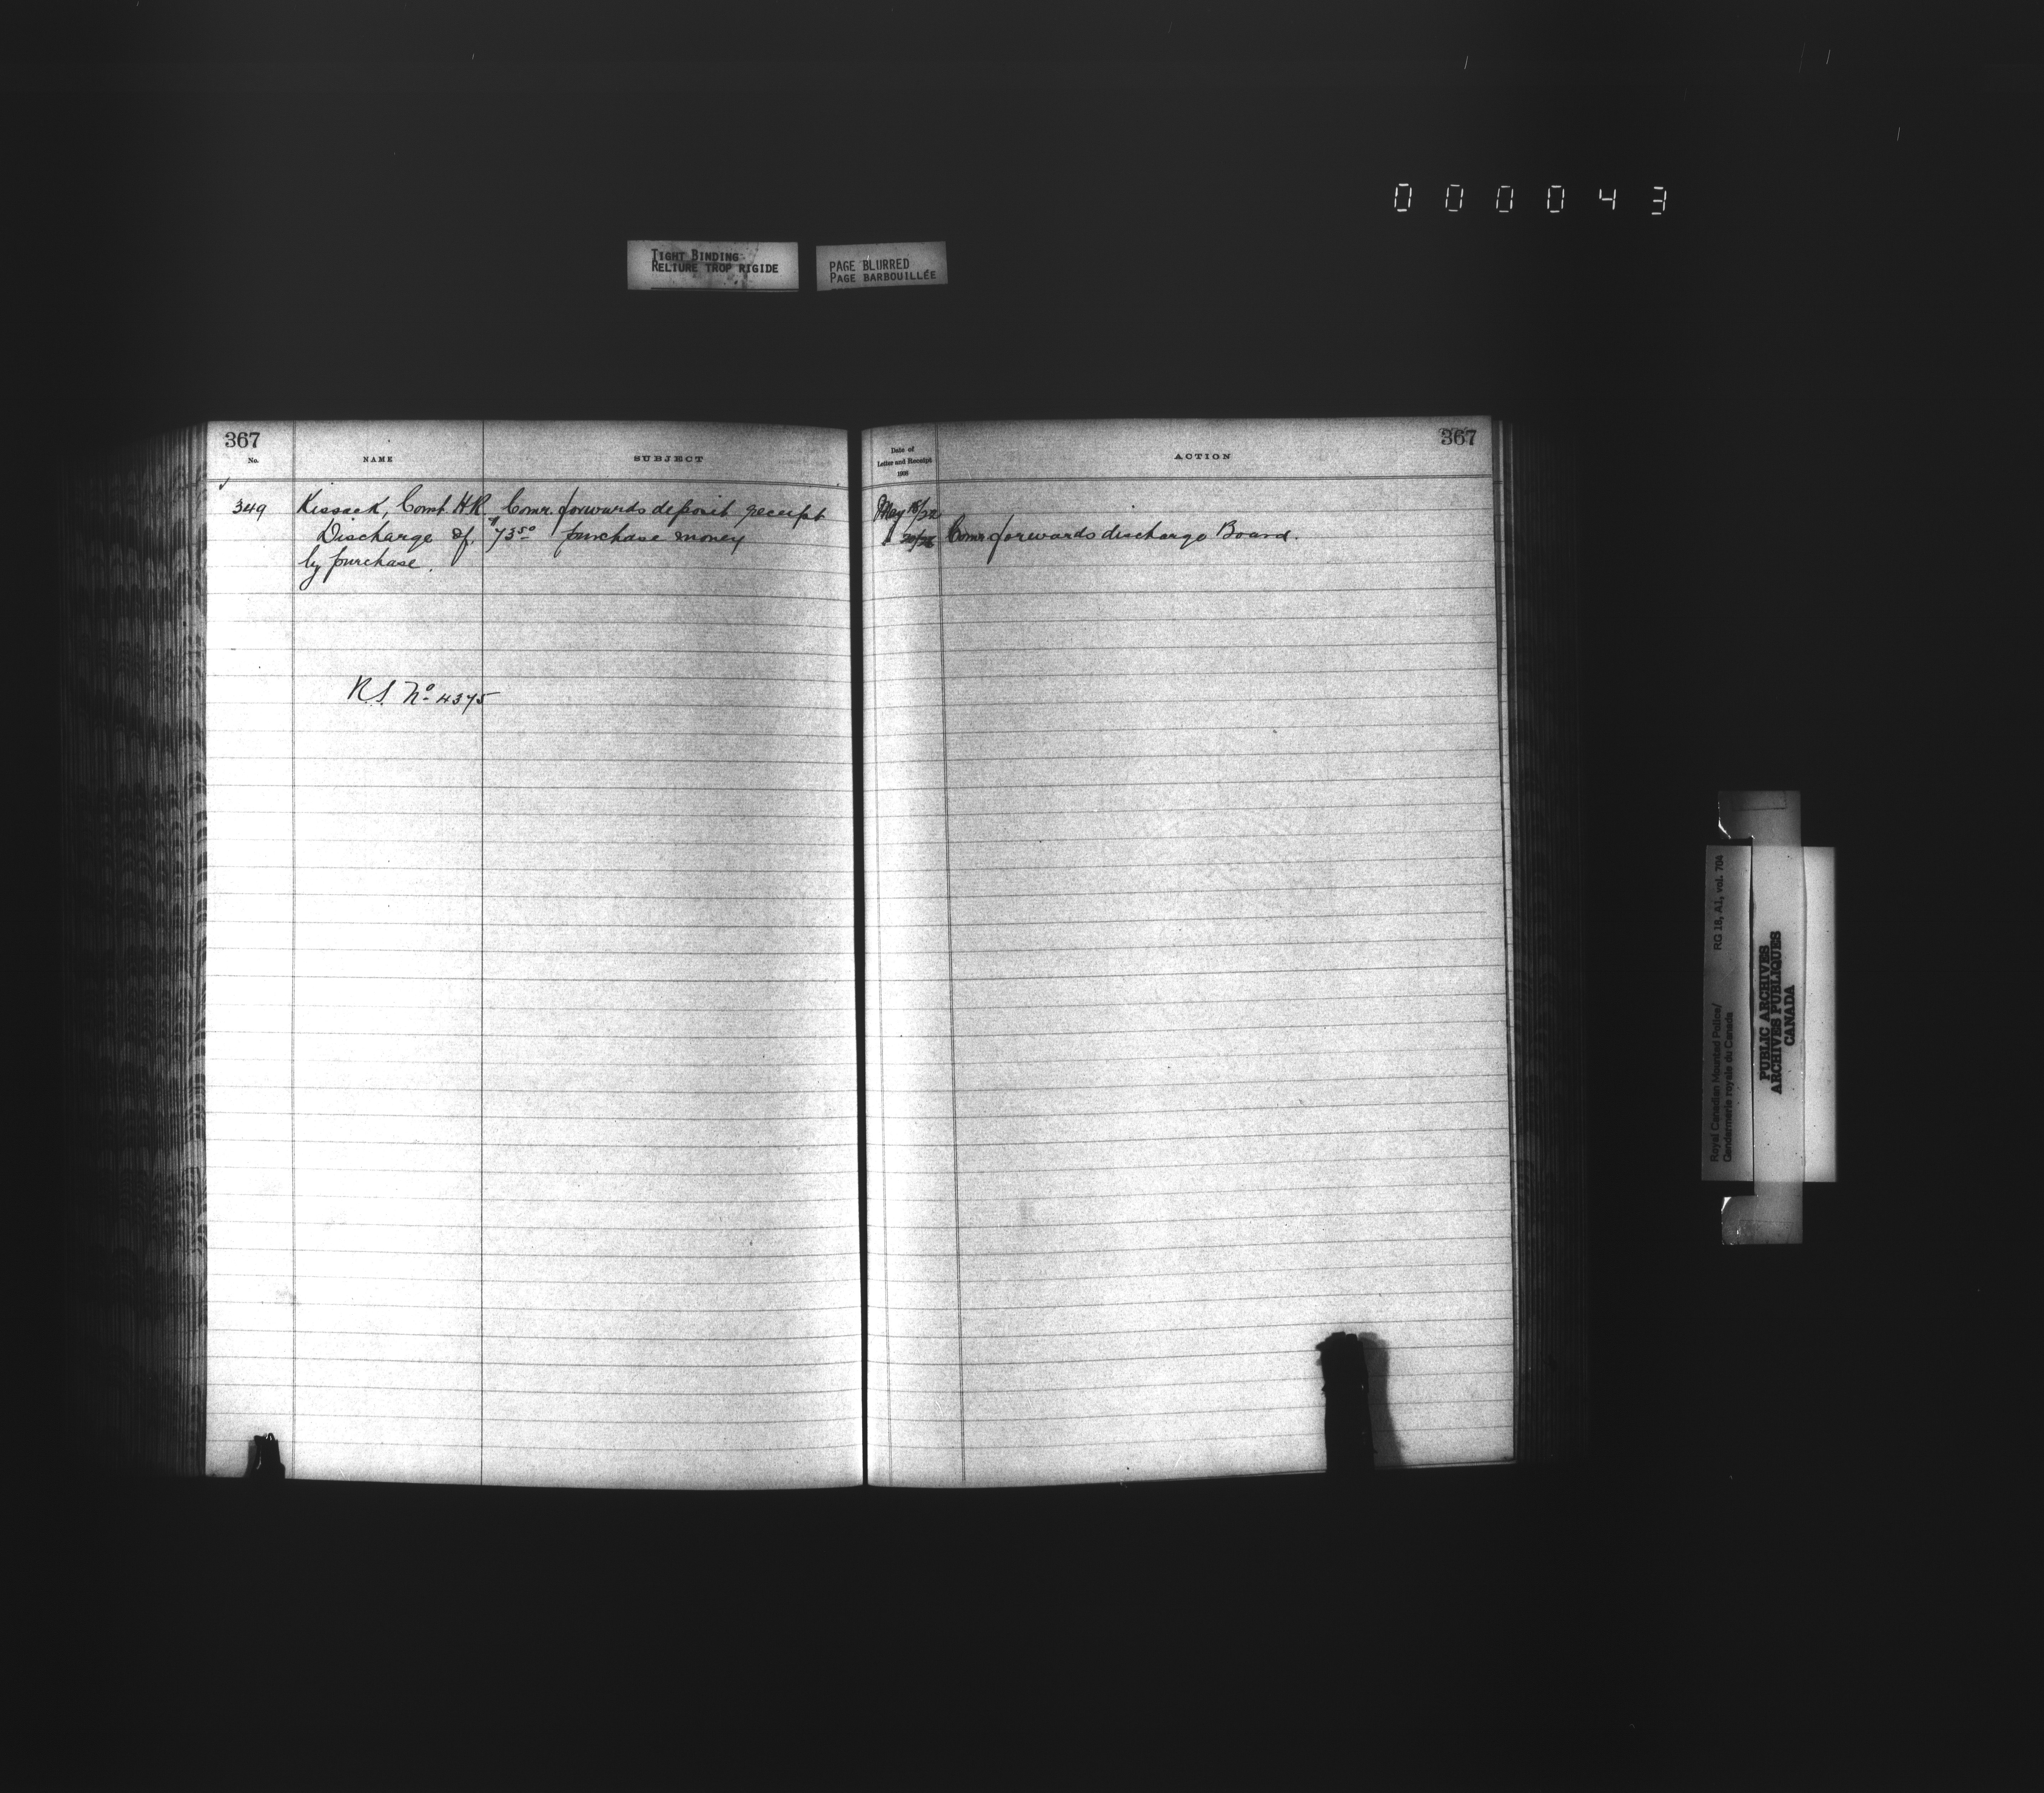 000043
TIGHT BINDING
RELIURE TROP RIGIDE
PAGE BLURRED
PAGE BARBOUILLÉE
367
No.
NAME
SUBJECT
349
Kissack, Const. H.R.
Discharge of,
by purchase.
Comr. forwards deposit receipt
purchase money
R.S. No 4375
367
Date of
Letter and Receipt
ACTION
May 18/22
Comr. forwards discharge Board.
Royal Canadian Mounted Police/
Gendarmerie royale du Canada
RG 18, A1, vol. 704
PUBLIC ARCHIVES
ARCHIVES PUBLIQUES
CANADA